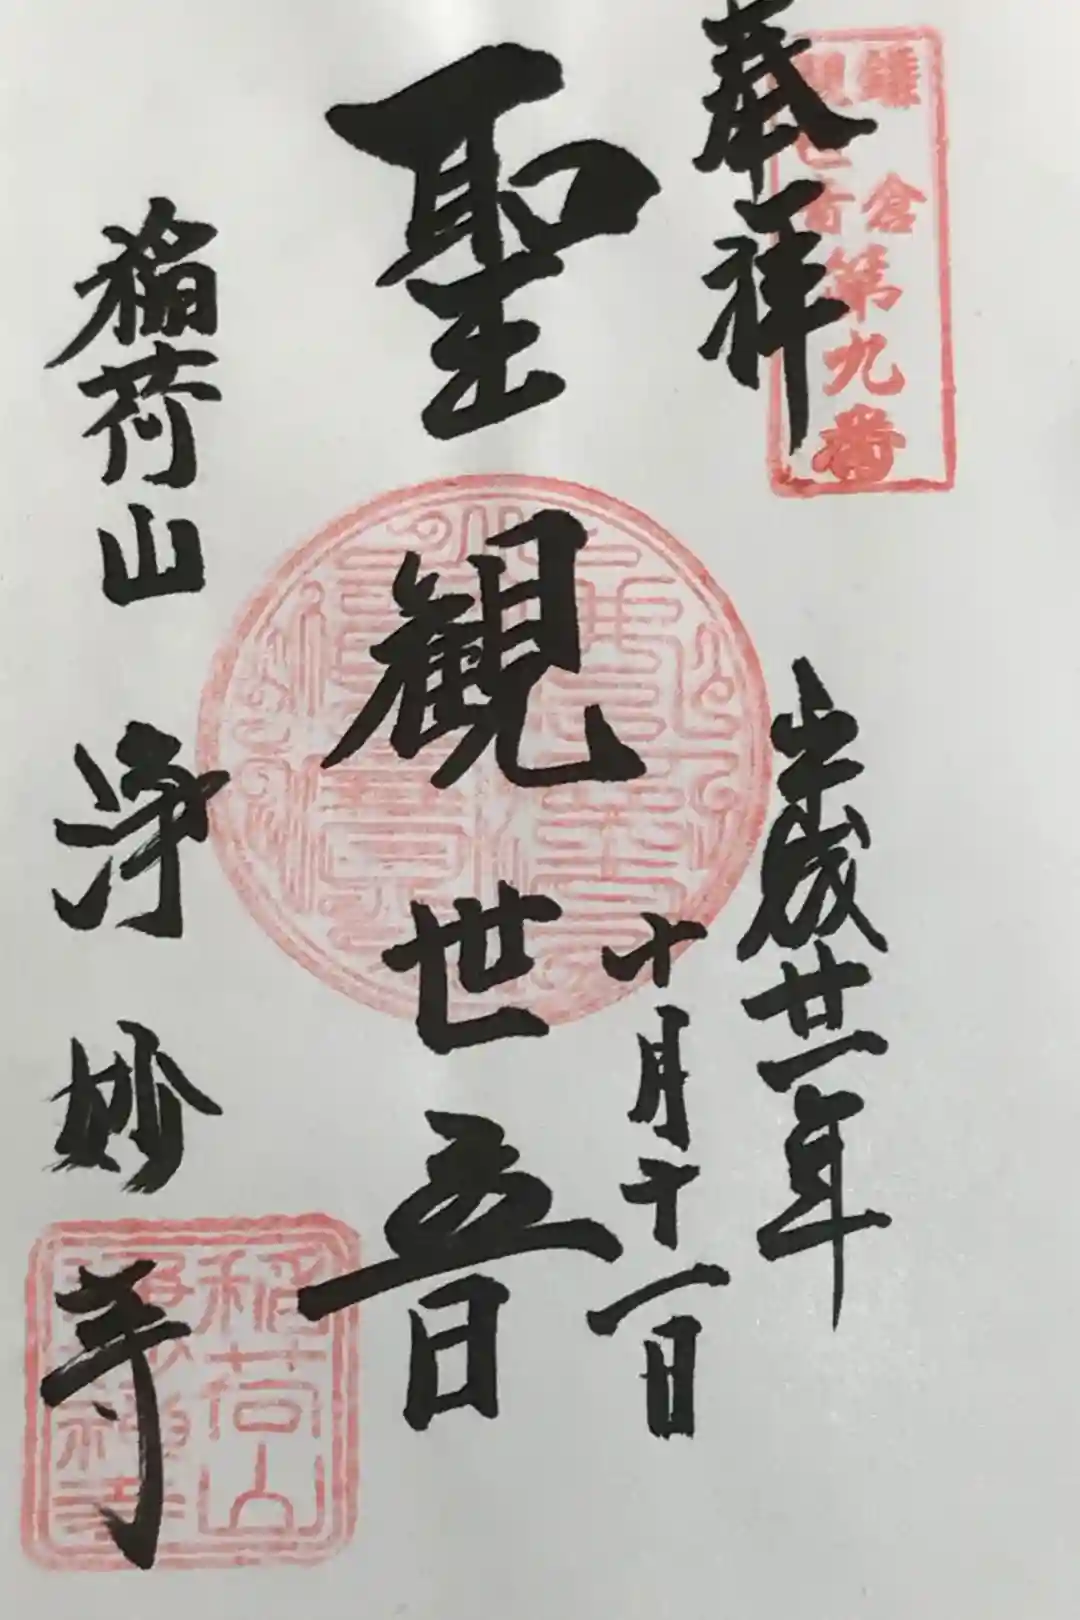 鎌倉
観世音
第九番
奉拝
平成廿一年
十月十一日
聖観世音
稲荷山 浄妙寺
稲荷山
浄妙禅寺